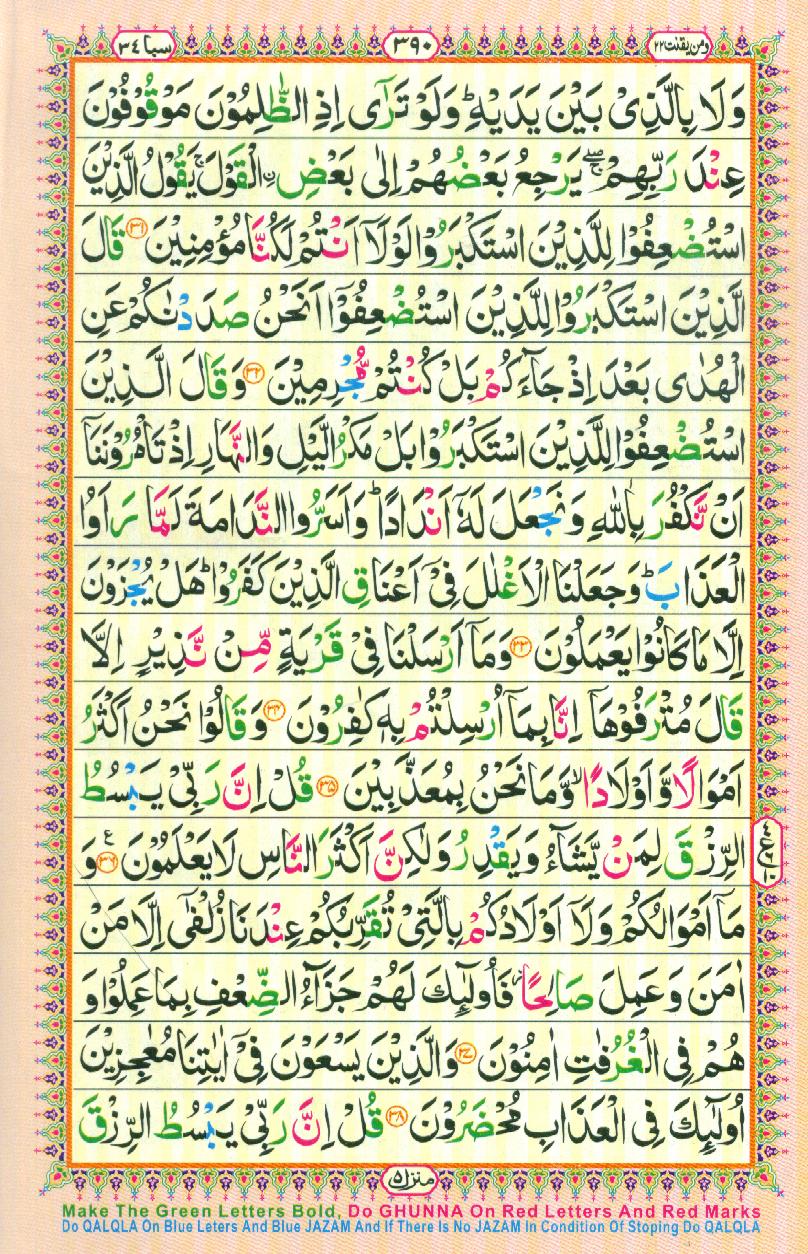 ومن یقنت ۲۲
۳۹۰
سبا ۳٤
وَلَا بِالَّذِیْ بَیْنَ یَدَیْهِ ؕ وَلَوْ تَرٰۤی اِذِ الظّٰلِمُوْنَ مَوْقُوْفُوْنَ
عِنْدَ رَبِّهِمْ ۖۚ یَرْجِعُ بَعْضُهُمْ اِلٰی بَعْضِ ࣙالْقَوْلَ ۚ یَقُوْلُ الَّذِیْنَ
اسْتُضْعِفُوْا لِلَّذِیْنَ اسْتَكْبَرُوْا لَوْلَاۤ اَنْتُمْ لَكُنَّا مُؤْمِنِیْنَ ﴿۳۱﴾ قَالَ
الَّذِیْنَ اسْتَكْبَرُوْا لِلَّذِیْنَ اسْتُضْعِفُوْۤا اَنَحْنُ صَدَدْنٰكُمْ عَنِ
الْهُدٰی بَعْدَ اِذْ جَآءَكُمْ بَلْ كُنْتُمْ مُّجْرِمِیْنَ ﴿۳۲﴾ وَقَالَ الَّذِیْنَ
اسْتُضْعِفُوْا لِلَّذِیْنَ اسْتَكْبَرُوْا بَلْ مَكْرُ الَّیْلِ وَالنَّهَارِ اِذْ تَاْمُرُوْنَنَاۤ
اَنْ نَّكْفُرَ بِاللّٰهِ وَنَجْعَلَ لَهٗۤ اَنْدَادًا ؕ وَاَسَرُّوا النَّدَامَةَ لَمَّا رَاَوُا
الْعَذَابَ ؕ وَجَعَلْنَا الْاَغْلٰلَ فِیْۤ اَعْنَاقِ الَّذِیْنَ كَفَرُوْا ؕ هَلْ یُجْزَوْنَ
اِلَّا مَا كَانُوْا یَعْمَلُوْنَ ﴿۳۳﴾ وَمَاۤ اَرْسَلْنَا فِیْ قَرْیَةٍ مِّنْ نَّذِیْرٍ اِلَّا
قَالَ مُتْرَفُوْهَاۤ اِنَّا بِمَاۤ اُرْسِلْتُمْ بِهٖ كٰفِرُوْنَ ﴿۳٤﴾ وَقَالُوْا نَحْنُ اَكْثَرُ
اَمْوَالًا وَّاَوْلَادًا ۙ وَّمَا نَحْنُ بِمُعَذَّبِیْنَ ﴿۳۵﴾ قُلْ اِنَّ رَبِّیْ یَبْسُطُ
الرِّزْقَ لِمَنْ یَّشَآءُ وَیَقْدِرُ وَلٰكِنَّ اَكْثَرَ النَّاسِ لَا یَعْلَمُوْنَ ﴿۳۶﴾ ع وَ
مَاۤ اَمْوَالُكُمْ وَلَاۤ اَوْلَادُكُمْ بِالَّتِیْ تُقَرِّبُكُمْ عِنْدَنَا زُلْفٰۤی اِلَّا مَنْ
اٰمَنَ وَعَمِلَ صَالِحًا ؗ فَاُولٰٓئِكَ لَهُمْ جَزَآءُ الضِّعْفِ بِمَا عَمِلُوْا وَ
هُمْ فِی الْغُرُفٰتِ اٰمِنُوْنَ ﴿۳۷﴾ وَالَّذِیْنَ یَسْعَوْنَ فِیْۤ اٰیٰتِنَا مُعٰجِزِیْنَ
اُولٰٓئِكَ فِی الْعَذَابِ مُحْضَرُوْنَ ﴿۳۸﴾ قُلْ اِنَّ رَبِّیْ یَبْسُطُ الرِّزْقَ
منزل ۵
Make The Green Letters Bold, Do GHUNNA On Red Letters And Red Marks
Do QALQLA On Blue Leters And Blue JAZAM And If There Is No JAZAM In Condition Of Stoping Do QALQLA